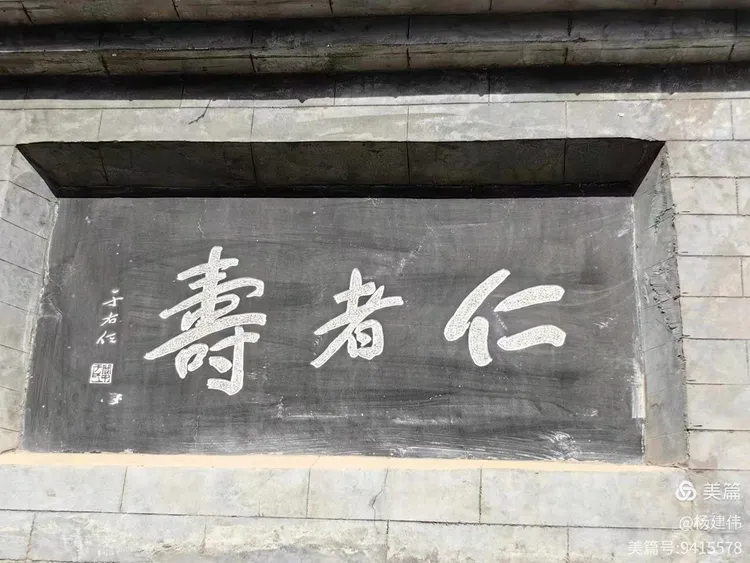 仁者壽
于右任
美篇
@杨建伟
美篇号:9415578